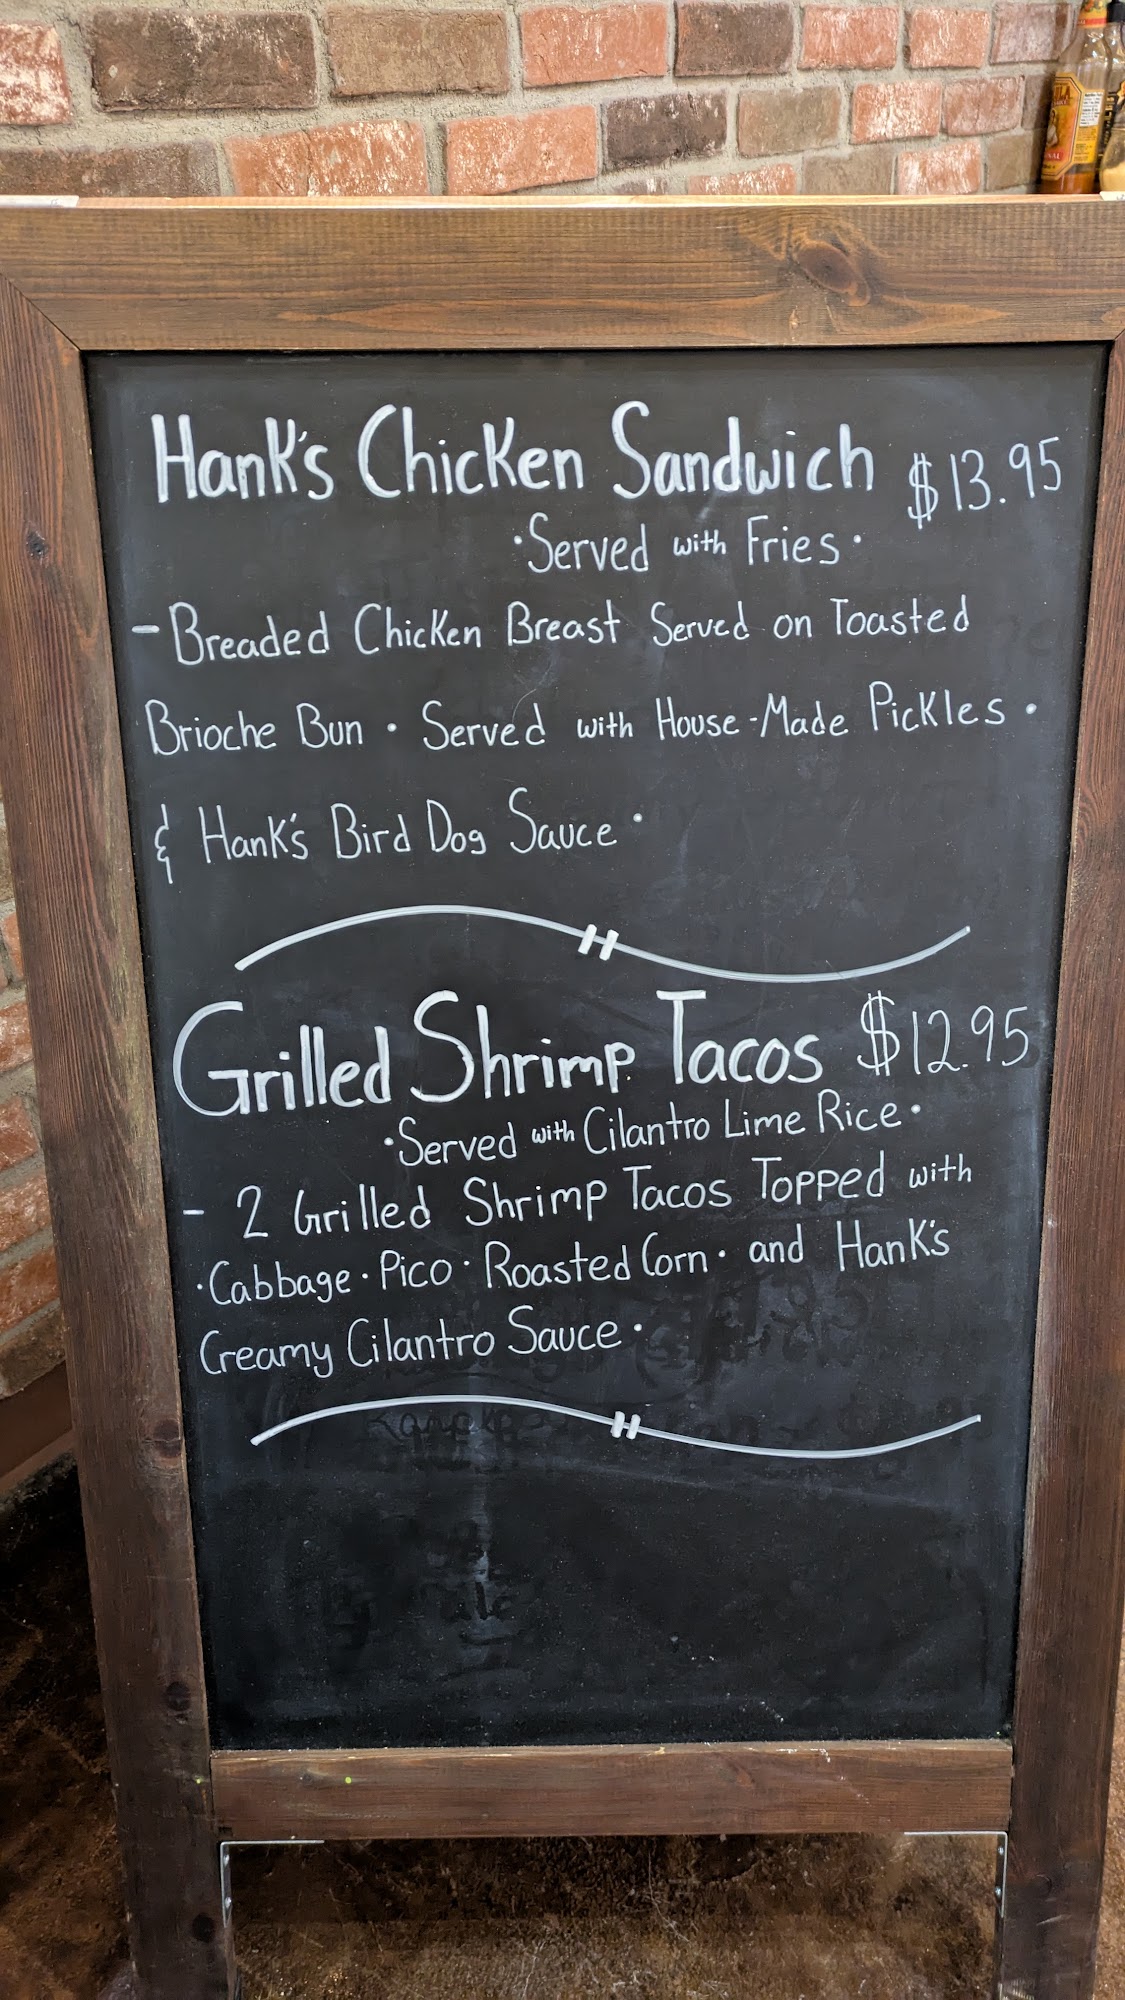 Hank's Chicken Sandwich $13.95
·Served with Fries·
- Breaded Chicken Breast Served on Toasted
Brioche Bun · Served with House-Made Pickles ·
& Hank's Bird Dog Sauce ·
Grilled Shrimp Tacos $12.95
·Served with Cilantro Lime Rice·
- 2 Grilled Shrimp Tacos Topped with
·Cabbage · Pico · Roasted Corn · and Hank's
Creamy Cilantro Sauce ·